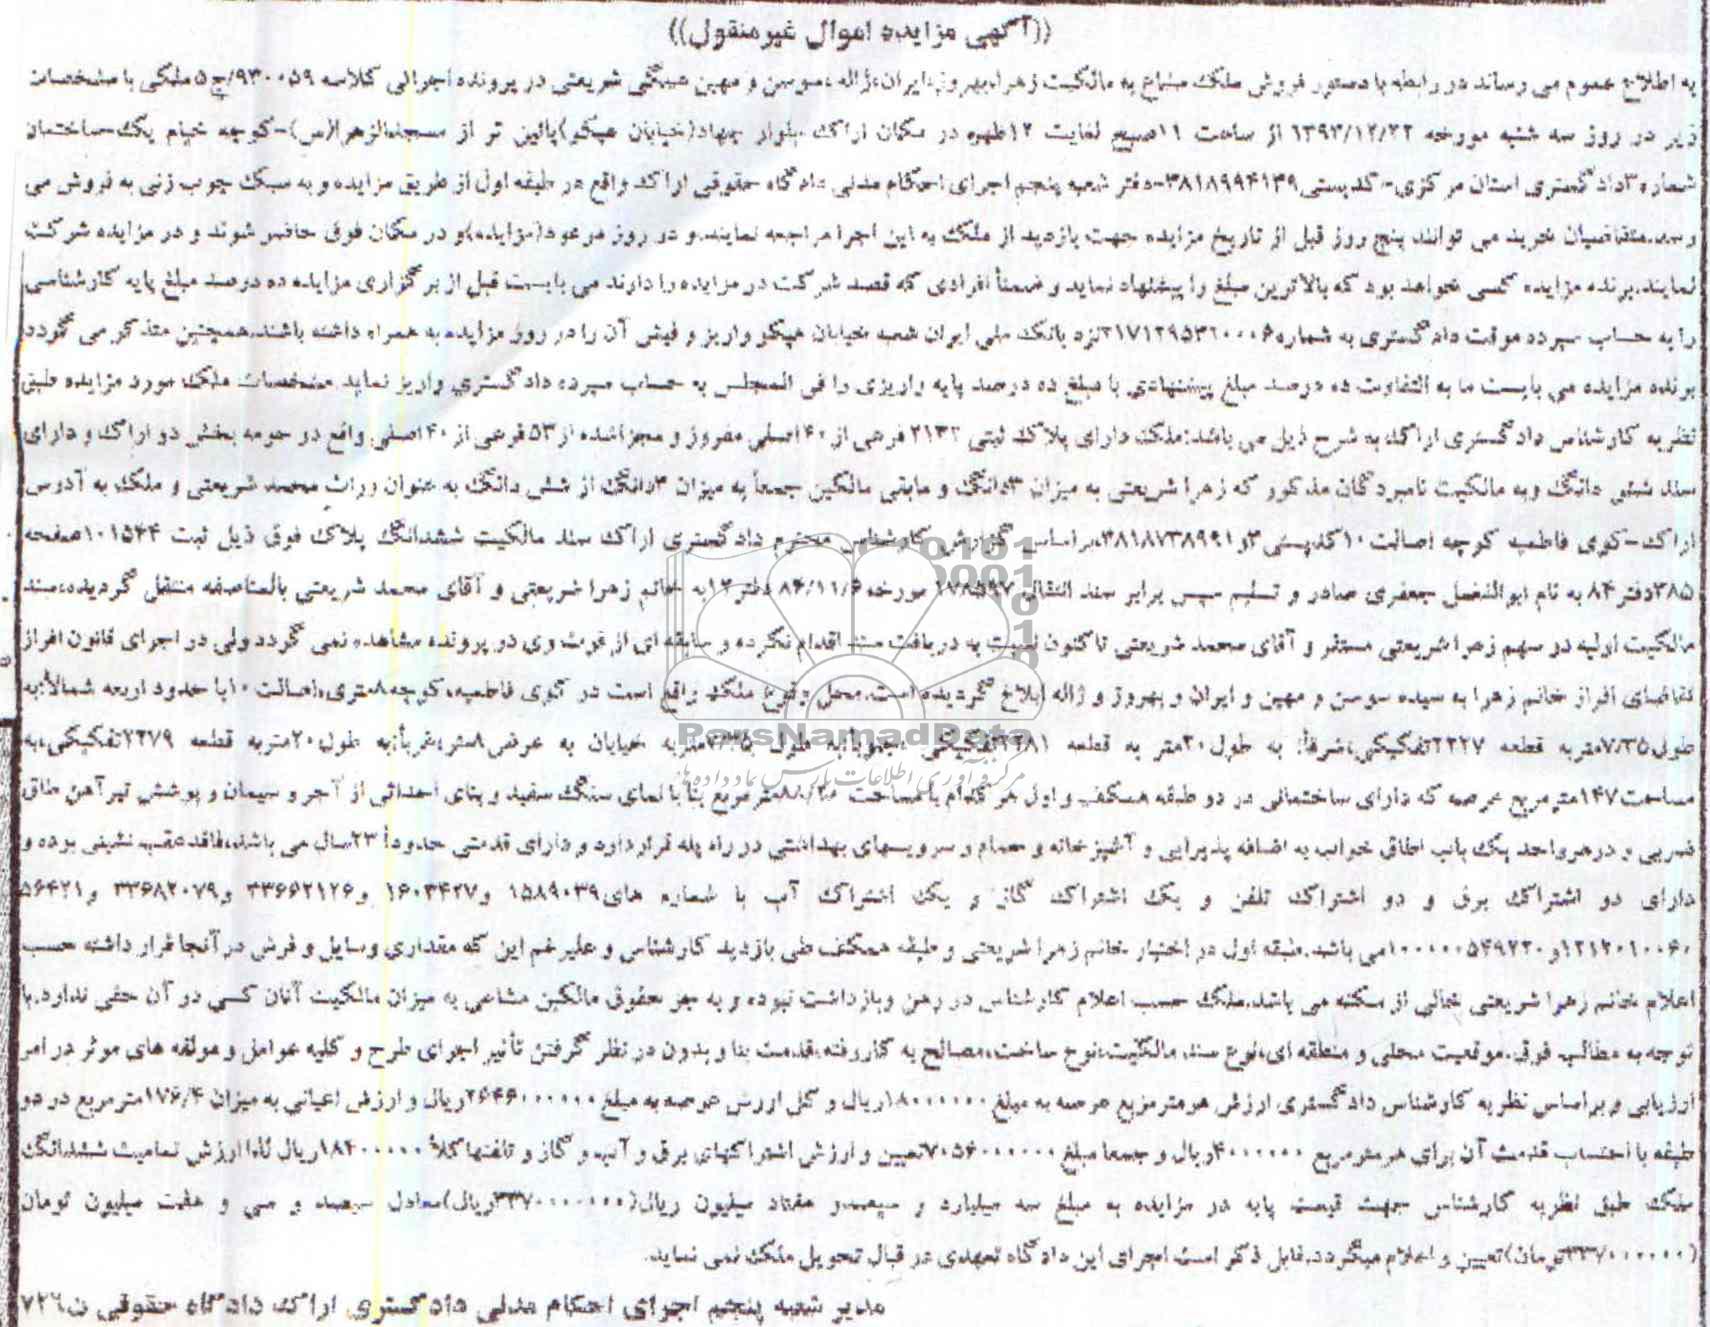 ((آگهی مزایده اموال غیرمنقول))
به اطلاع عموم می رساند در رابطه با دستور فروش ملک مشاع به مالکیت زهرا،بهروز،ایران،ژاله ،سوسن و مهین همگی شریعتی در پرونده اجرائی کلاسه ۹۳۰۰۵۹/ج۵ملکی با مشخصات
زیر در روز سه شنبه مورخه ۱۳۹۳/۱۲/۲۲ از ساعت ۱۱صبح لغایت ۱۲ظهر در مکان اراک بلوار جهاد(خیابان هپکو)پائین تر از مسجدالزهرا(س)-کوچه خیام یک-ساختمان
شماره۳دادگستری استان مرکزی-کدپستی۳۸۱۸۹۹۴۱۳۹-دفتر شعبه پنجم اجرای احکام مدنی دادگاه حقوقی اراک واقع در طبقه اول از طریق مزایده و به سبک چوب زنی به فروش می
رسد.متقاضیان خرید می توانند پنج روز قبل از تاریخ مزایده جهت بازدید از ملک به این اجرا مراجعه نمایند.و در روز موعود(مزایده)و در مکان فوق حاضر شوند و در مزایده شرکت
نمایند.برنده مزایده کسی خواهد بود که بالاترین مبلغ را پیشنهاد نماید و ضمناً افرادی که قصد شرکت در مزایده را دارند می بایست قبل از برگزاری مزایده ده درصد مبلغ پایه کارشناسی
را به حساب سپرده موقت دادگستری به شماره۲۱۷۱۲۹۵۳۲۰۰۰۶نزد بانک ملی ایران شعبه خیابان هپکو واریز و فیش آن را در روز مزایده به همراه داشته باشند.همچنین متذکر می گردد
برنده مزایده می بایست ما به التفاوت ده درصد مبلغ پیشنهادی با مبلغ ده درصد پایه واریزی را فی المجلس به حساب سپرده دادگستری واریز نماید مشخصات ملک مورد مزایده طبق
نظریه کارشناس دادگستری اراک به شرح ذیل می باشد:ملک دارای پلاک ثبتی ۲۱۳۲ فرعی از ۴۰اصلی مفروز و مجزا شده از ۵۳فرعی از ۴۰اصلی واقع در حومه بخش دو اراک و دارای
سند شش دانگ و به مالکیت نامبردگان مذکور که زهرا شریعتی به میزان ۳دانگ و مابقی مالکین جمعاً به میزان ۳دانگ از شش دانگ به عنوان وراث محمد شریعتی و ملک به آدرس
اراک-کوی فاطمیه کوچه اصالت ۱۰کدپستی۳و۳۸۱۸۷۳۸۹۹۱براساس گزارش کارشناس محترم دادگستری اراک سند مالکیت ششدانگ پلاک فوق ذیل ثبت ۱۰۱۵۴۴صفحه
۳۸۵دفتر۸۴ به نام ابوالفضل جعفری صادر و تسلیم سپس برابر سند انتقال ۱۷۸۵۹۷ مورخه ۸۴/۱۱/۶ دفتر۱۲به خانم زهرا شریعتی و آقای محمد شریعتی بالمناصفه منتقل گردیده،سند
مالکیت اولیه در سهم زهرا شریعتی مستقر و آقای محمد شریعتی تاکنون نسبت به دریافت سند اقدام نکرده و سابقه ای از فوت وی در پرونده مشاهده نمی گردد ولی در اجرای قانون افراز
تقاضای افراز خانم زهرا به سیده سوسن و مهین و ایران و بهروز و ژاله ابلاغ گردیده است.محل وقوع ملک واقع است در کوی فاطمیه،کوچه۸متری،اصالت ۱۰با حدود اربعه شمالاً:به
طول۷/۳۵متربه قطعه ۲۲۲۷تفکیکی،شرقاً: به طول۲۰متر به قطعه ۲۲۸۱تفکیکی ،جنوباً:به طول ۷/۳۵متربه خیابان به عرض۸متر،غرباً:به طول۲۰متربه قطعه ۲۲۷۹تفکیکی،به
مساحت۱۴۷مترمربع عرصه که دارای ساختمانی در دو طبقه همکف و اول هر کدام با مساحت ۸۸/۲۰مترمربع بنا با نمای سنگ سفید و بنای احداثی از آجر و سیمان و پوشش تیرآهن طاق
ضربی و در هرواحد یک باب اطاق خواب به اضافه پذیرایی و آشپزخانه و حمام و سرویسهای بهداشتی در راه پله قرار دارد و دارای قدمتی حدوداً ۲۳سال می باشد،فاقد عقب نشینی بوده و
دارای دو اشتراک برق و دو اشتراک تلفن و یک اشتراک گاز و یک اشتراک آب با شماره های۱۵۸۹۰۳۹ و۱۶۰۳۴۲۷ و۳۳۶۶۲۱۲۶ و۳۳۶۸۲۰۷۹ و۵۶۴۲۱
۱۲۱۲۰۱۰۰۶۰و۱۰۰۰۰۰۵۴۹۲۲۰می باشد.طبقه اول در اختیار خانم زهرا شریعتی و طبقه همکف طی بازدید کارشناس و علیرغم این که مقداری وسایل و فرش در آنجا قرار داشته حسب
اعلام خانم زهرا شریعتی خالی از سکنه می باشد.ملک حسب اعلام کارشناس در رهن وبازداشت نبوده و به جز حقوق مالکین مشاعی به میزان مالکیت آنان کسی در آن حقی ندارد.با
توجه به مطالب فوق،موقعیت محلی و منطقه ای،نوع سند مالکیت،نوع ساخت،مصالح به کار رفته،قدمت بنا و بدون در نظر گرفتن تأثیر اجرای طرح و کلیه عوامل و مولفه های موثر در امر
ارزیابی و براساس نظریه کارشناس دادگستری ارزش هرمترمربع عرصه به مبلغ ۱۸۰۰۰۰۰۰ریال و کل ارزش عرصه به مبلغ ۲۶۴۶۰۰۰۰۰۰ریال و ارزش اعیانی به میزان ۱۷۶/۴مترمربع در دو
طبقه با احتساب قدمت آن برای هرمترمربع ۴۰۰۰۰۰۰ریال و جمعا مبلغ ۷۰۵۶۰۰۰۰۰۰تعیین و ارزش اشتراکهای برق و آب و گاز و تلفنها کلاً ۱۸۴۰۰۰۰۰ریال لذا ارزش تمامیت ششدانگ
ملک طبق نظریه کارشناس جهت قیمت پایه در مزایده به مبلغ سه میلیارد و سیصدو هفتاد میلیون ریال(۳۳۷۰۰۰۰۰۰۰ریال)معادل سیصد و سی و هفت میلیون تومان
(۳۳۷۰۰۰۰۰۰تومان)تعیین و اعلام میگردد.قابل ذکر است اجرای این دادگاه تعهدی در قبال تحویل ملک نمی نماید.
مدیر شعبه پنجم اجرای احکام مدنی دادگستری اراک دادگاه حقوقی ن۷۲۶
ParsNamadData
مرکز فرآوری اطلاعات پارس نماد داده ها